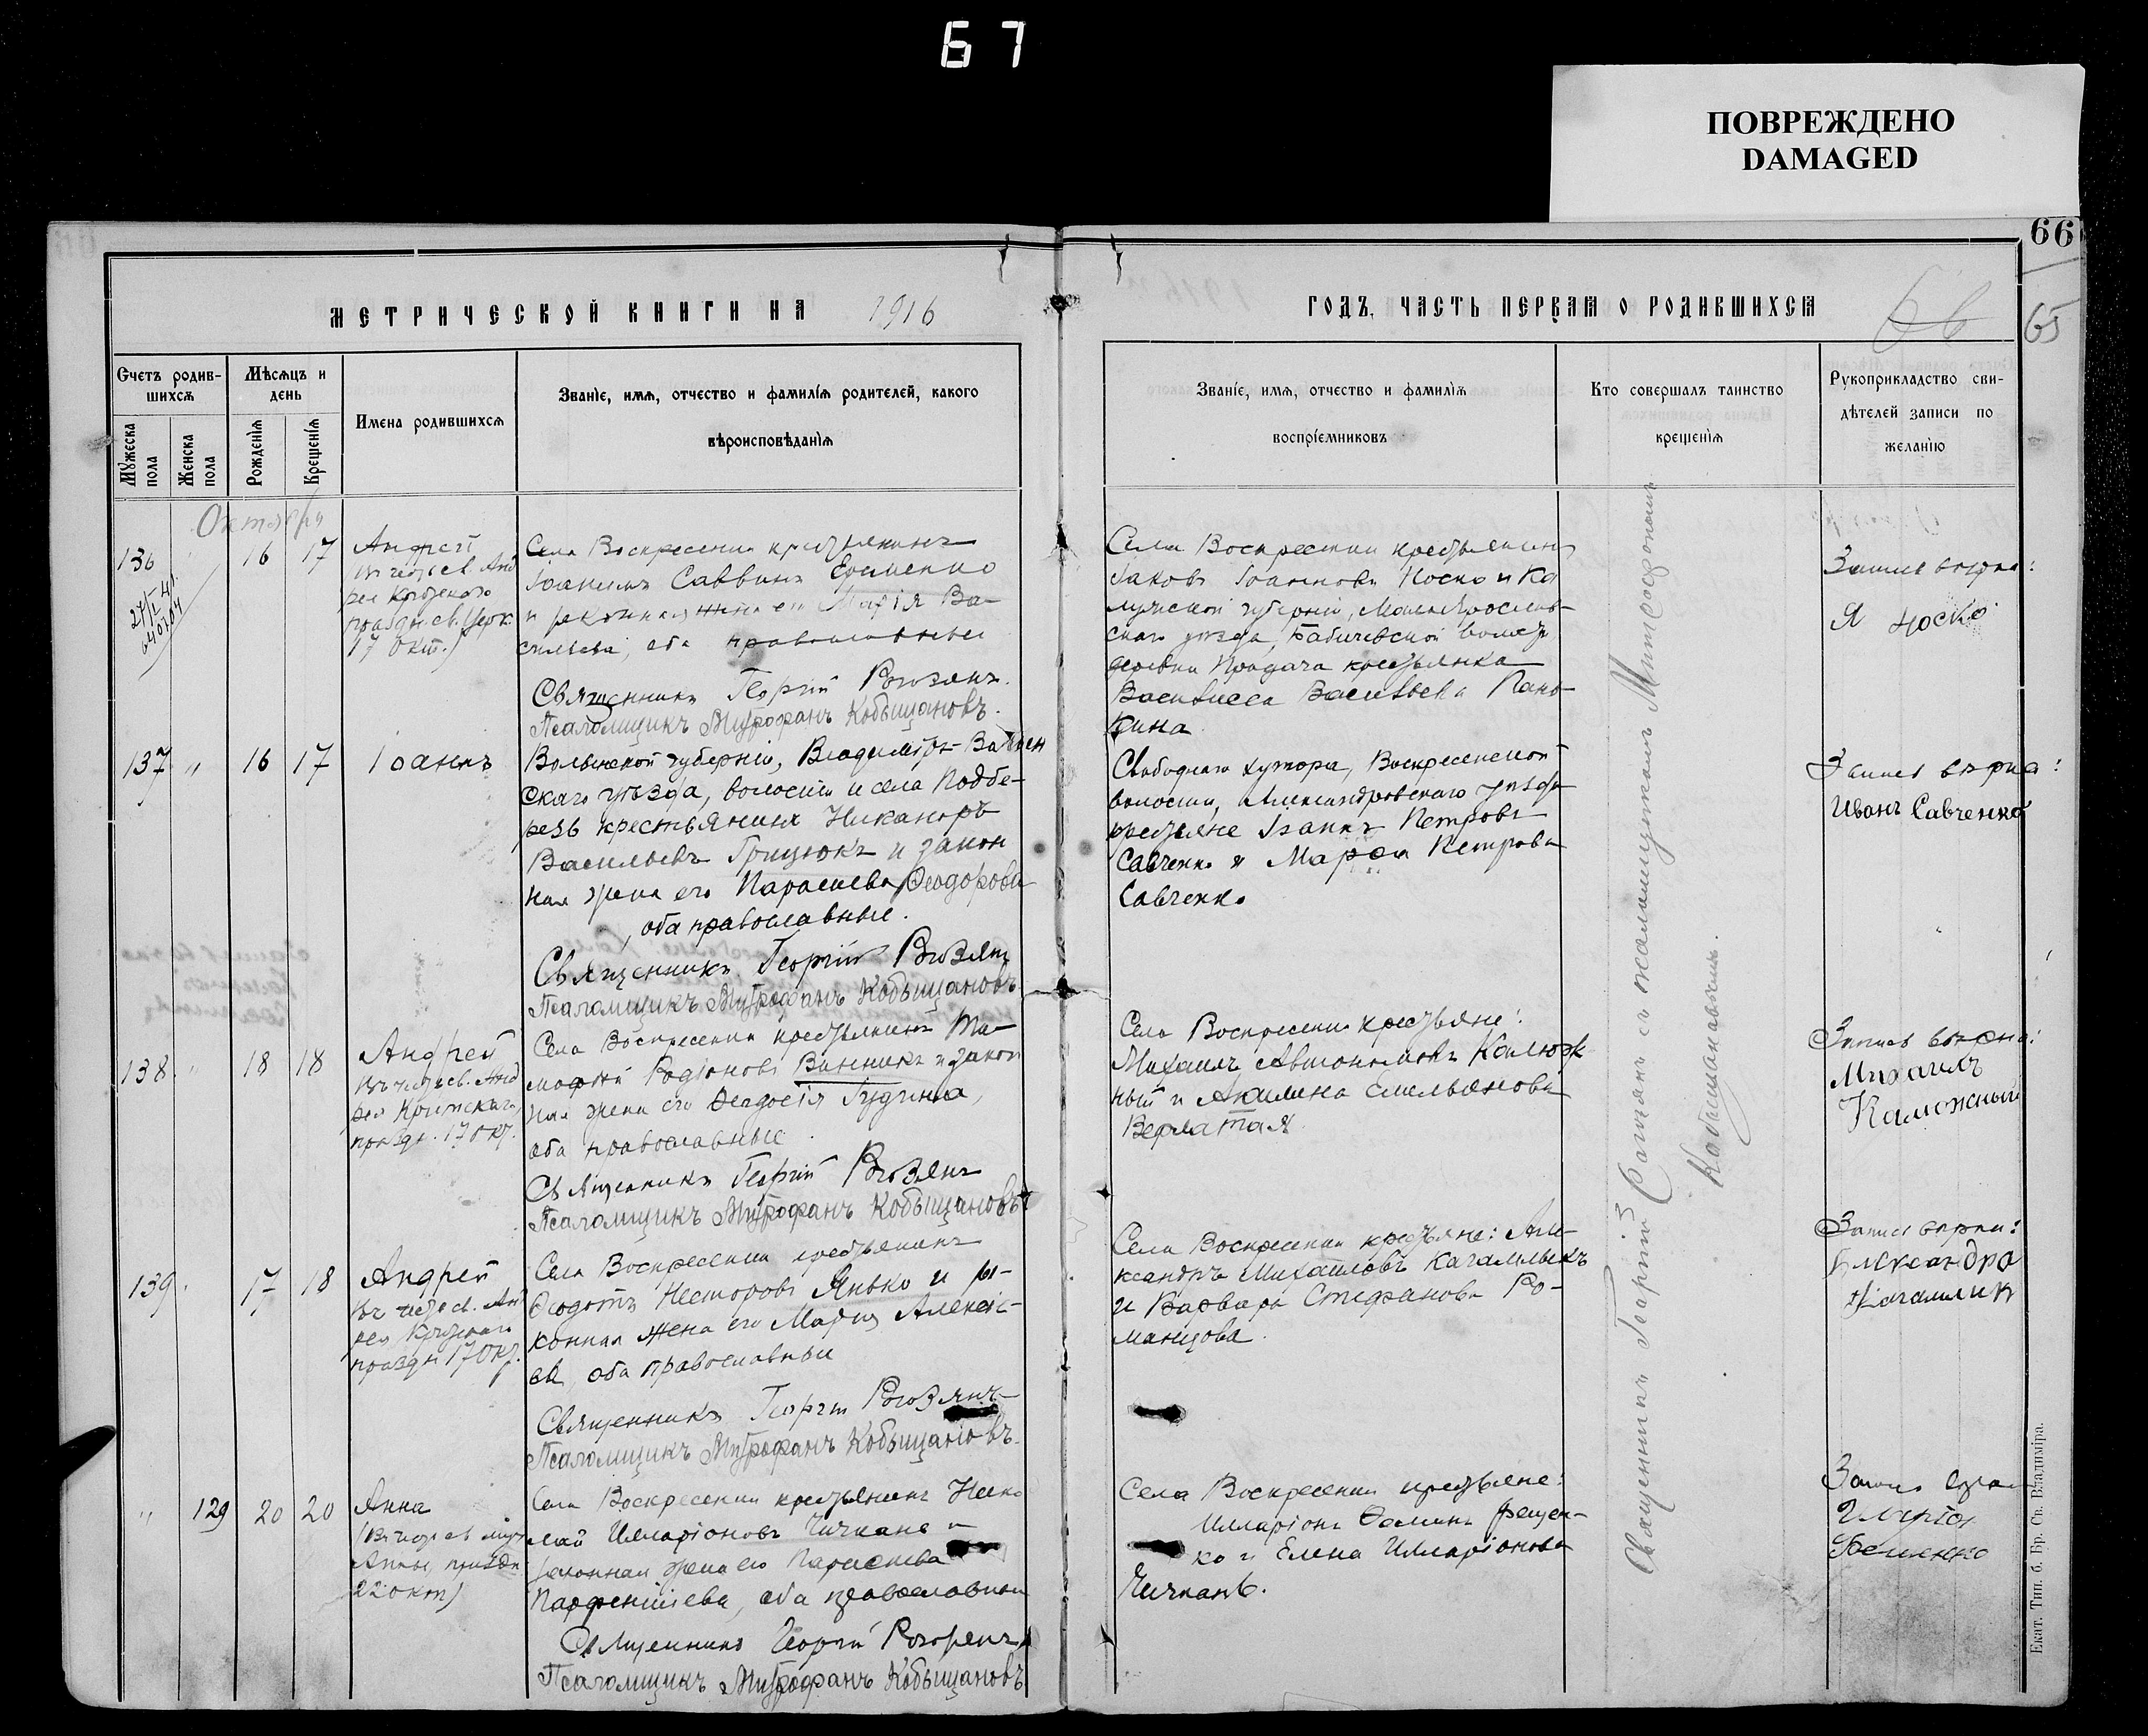 67
ПОВРЕЖДЕНО
DAMAGED
66
65
МЕТРИЧЕСКОЙ КНИГИ НА 1916
ГОДЪ, ЧАСТЬ ПЕРВАЯ О РОДИВШИХСЯ
Счетъ родив-
шихся
Мужеска пола
Женска пола
Мѣсяцъ и
день
Рожденія
Крещенія
Имена родившихся
Званіе, имя, отчество и фамилія родителей, какого
вѣроисповѣданія
Званіе, имя, отчество и фамилія
воспріемниковъ
Кто совершалъ таинство
крещенія
Рукоприкладство сви-
дѣтелей записи по
желанію
Октября
136
16
17
Андрей
17 Окт.)
Села Воскресенки крестьянинъ
Іоакимъ Саввинъ Еременко
и законная жена его Марія Ва-
сильева, оба православные
Священникъ Георгій Рогозянъ
Псаломщикъ Митрофанъ Кобыщановъ.
Села Воскресенки крестьянинъ
Іаковъ Іоанновъ Носко и Ка
лужской губерніи, Малоярослав-
скаго уѣзда, Бабичевской волос.
деревни крестьянка
Василисса Васильева Пань-
кина
Запись вѣрна:
Я Носко
137 "
16
17
Іоаннъ
Волынской губерніи, Владиміръ-Волын
скаго уѣзда, волости и села Подбе-
резь крестьянинъ Никаноръ
Васильевъ Грицюкъ и закон
ная жена его Параскева Ѳеодорова
, оба православные.
Священникъ Георгій Рогозянъ
Псаломщикъ Митрофанъ Кобыщановъ
Свободнаго хутора, Воскресенской
волости, Александровскаго уѣзда
крестьяне Іоаннъ Петровъ
Савченко и Марѳа Петрова
Савченко
Запись вѣрна:
Иванъ Савченко
138 "
18
18
Андрей
въ честь св. Анд
рея Критскаго
праздн. 17 Окт.
Села Воскресенки крестьянинъ Ти-
моѳей Родіоновъ Винникъ и закон
ная жена его Ѳеодосія Гудина,
оба православные.
Священникъ Георгій Рогозянъ
Псаломщикъ Митрофанъ Кобыщановъ
Села Воскресенки крестьяне:
Михаилъ Автономовъ Калюж
ный и Акилина Емельянова
Верлатая
Запись вѣрна:
Михаилъ
Каложный
139 "
17
18
Андрей
въ честь св. Анд
праздн 17 Окт.
Села Воскресенки крестьянинъ
Ѳеодотъ Несторовъ Янько и за-
конная жена его Марія Алексѣ-
ева, оба православные
Священникъ Георгій Рогозянъ
Псаломщикъ Митрофанъ Кобыщановъ.
Села Воскресенки крестьяне: Але-
ксандръ Михаиловъ Качамлыкъ
и Варвара Стефанова Ро-
манцова.
Запись вѣрна:
Александра
" 129
20
20
Анна
22 Окт)
Села Воскресенки крестьянинъ Нико
лай Илларіоновъ Чичкань и
законная жена его Параскева
Парѳеніева, оба православные
Священникъ Георгій Рогозянъ
Псаломщикъ Митрофанъ Кобыщановъ
Села Воскресенки крестьяне:
Илларіонъ Ѳоминъ Фещен-
ко и Елена Илларіонова
Чичкань.
Запись вѣрна
Священникъ Георгій Рогозянъ съ псаломщикомъ Митрофаномъ
Кобыщановымъ.
Екат. Тип. б. Бр. Св. Владиміра.